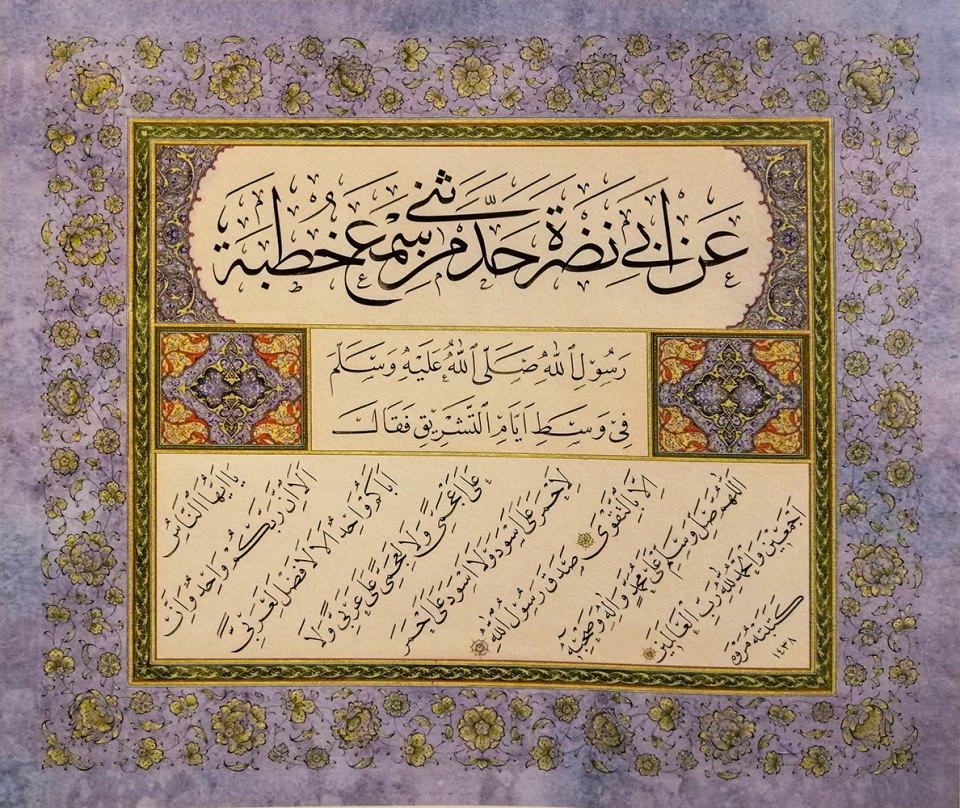 عَن ابي نضرة حدّثني من سمع خطبة
رَسُوْلِ اللهِ صَلَّى اللهُ عَلَيْهِ وَسَلَّمَ
فِيْ وَسَطِ اَيَّامِ التَّشْرِيْقِ فَقَالَ
يَا اَيُّهَا النَّاسُ
اَلَا اِنَّ رَبَّكُمْ وَاحِدٌ وَاِنَّ
اَبَاكُمْ وَاحِدٌ اَلَا لَا فَضْلَ لِعَرَبِيٍّ
عَلَى عَجَمِيٍّ وَلَا لِعَجَمِيٍّ عَلَى عَرَبِيٍّ وَلَا
لِاَحْمَرَ عَلَى اَسْوَدَ وَلَا اَسْوَدَ عَلَى اَحْمَرَ
اِلَّا بِالتَّقْوَى صَدَقَ رَسُوْلُ اللهِ
اَللّٰهُمَّ صَلِّ وَسَلِّمْ عَلَى مُحَمَّدٍ وَاٰلِهِ وَصَحْبِهِ
اَجْمَعِيْنَ وَالْحَمْدُ لِلّٰهِ رَبِّ الْعَالَمِيْنَ
كَتَبَتْهُ مَرْوَة
١٤٣٨